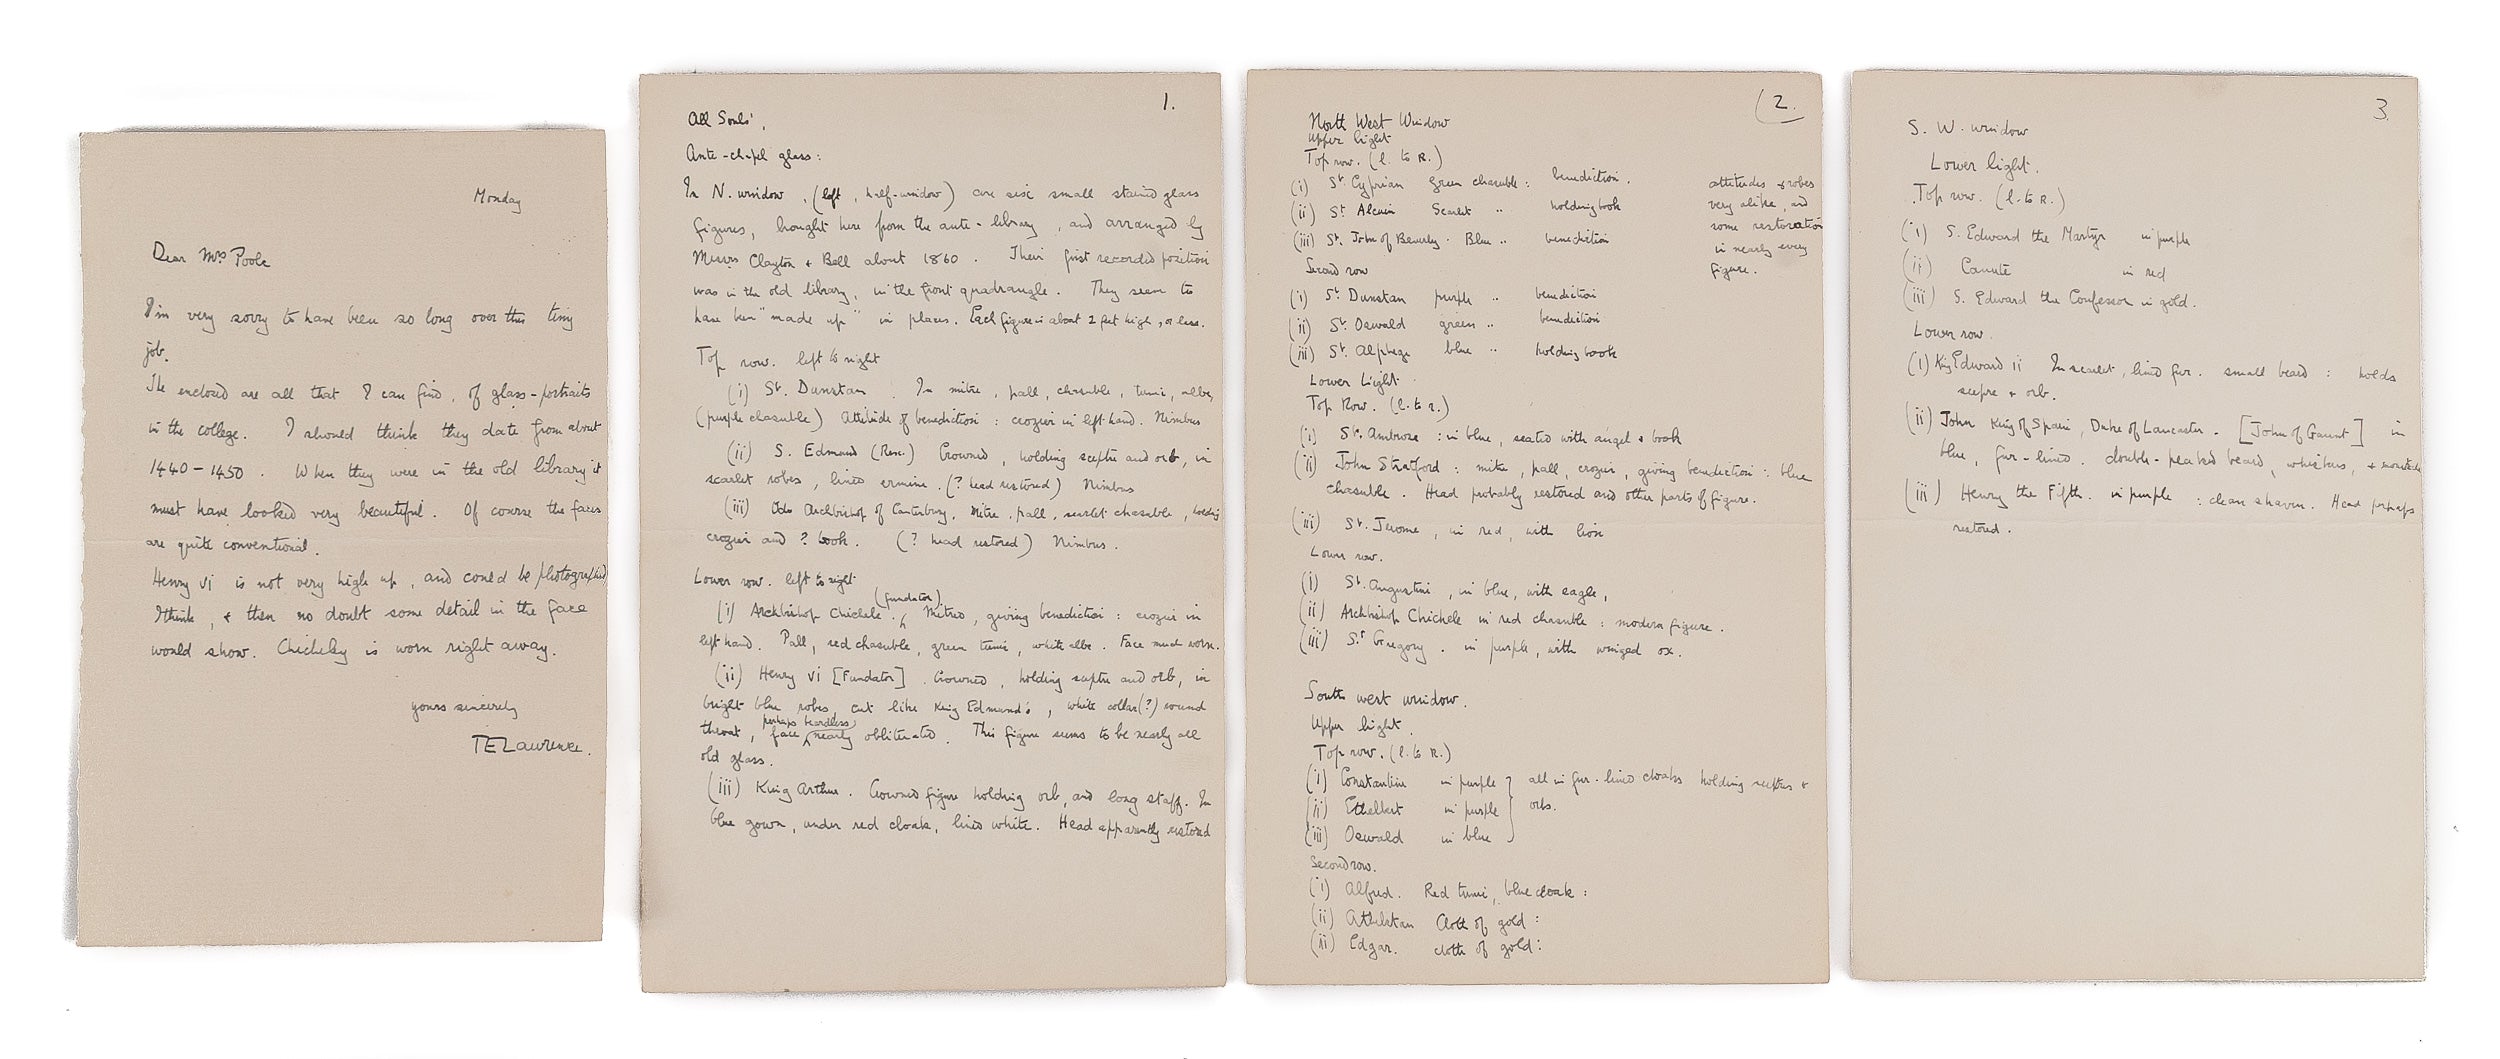 Monday
Dear Mrs Poole
I'm very sorry to have been so long over this tiny
job.
The enclosed are all that I can find, of glass-portraits
in the college. I should think they date from about
1440-1450. When they were in the old library it
must have looked very beautiful. Of course the faces
are quite conventional.
Henry VI is not very high up, and could be photographed
I think, & then no doubt some detail in the face
would show. Chicheley is worn right away.
yours sincerely
TELawrence.
1.
All Souls'.
Ante-chapel glass:
In N. window, (left, half-window) are six small stained glass
figures, brought here from the ante-library, and arranged by
Messrs Clayton & Bell about 1860. Their first recorded position
was in the old library, in the front quadrangle. They seem to
have been "made up" in places. Each figure is about 2 feet high, or less.
Top row. left to right
(i) St. Dunstan. In mitre, pall, chasuble, tunic, albe,
(purple chasuble) Attitude of benediction: crozier in left hand. Nimbus
(ii) S. Edmund (Rex.) Crowned, holding sceptre and orb, in
scarlet robes, lined ermine. (? head restored) Nimbus
(iii) Odo Archbishop of Canterbury. Mitre, pall, scarlet chasuble, holding
crozier and ? book. (? head restored) Nimbus.
Lower row. left to right
(i) Archbishop Chichele. (fundator) Mitred, giving benediction: crozier in
left hand. Pall, red chasuble, green tunic, white albe. Face much worn.
(ii) Henry VI [Fundator]. Crowned, holding sceptre and orb, in
bright blue robes, cut like King Edmund's, white collar(?) round
throat, face perhaps beardless, nearly obliterated. This figure seems to be nearly all
old glass.
(iii) King Arthur. Crowned figure holding orb, and long staff. In
blue gown, under red cloak, lined white. Head apparently restored
2.
North West Window
Upper light
Top row. (l. to R.)
(i) St. Cyprian Green chasuble: benediction. attitudes & robes
(ii) St Alcuin Scarlet " holding book very alike, and
(iii) St. John of Beverly. Blue " benediction some restoration
in nearly every
Second row figure.
(i) St. Dunstan purple " benediction
(ii) St. Oswald green " benediction
(iii) St. Alphege blue " holding book
Lower Light
Top Row. (l. to r.)
(i) St. Ambrose: in blue, seated with angel & book
(ii) John Stratford: mitre, pall, crozier, giving benediction: blue
chasuble. Head probably restored and other parts of figure.
(iii) St. Jerome, in red, with lion
Lower row.
(i) St. Augustine, in blue, with eagle,
(ii) Archbishop Chichele in red chasuble: modern figure.
(iii) St Gregory. in purple, with winged ox.
South west window.
Upper light.
Top row. (l. to R.)
(i) Constantine in purple } all in fur-lined cloaks holding sceptres &
(ii) Ethelbert in purple } orbs.
(iii) Oswald in blue }
Second row.
(i) Alfred. Red tunic, blue cloak:
(ii) Athelstan Cloth of gold:
(iii) Edgar. cloth of gold:
3.
S. W. window
Lower light.
Top row. (l. to R.)
(i) S. Edward the Martyr in purple
(ii) Canute in red
(iii) S. Edward the Confessor in gold.
Lower row.
(i) King Edward II In scarlet, lined fur. small beard: holds
sceptre & orb.
(ii) John King of Spain, Duke of Lancaster. [John of Gaunt] in
blue, fur-lined. double-peaked beard, whiskers, & moustache
(iii) Henry the Fifth. in purple: clean shaven. Head perhaps
restored.